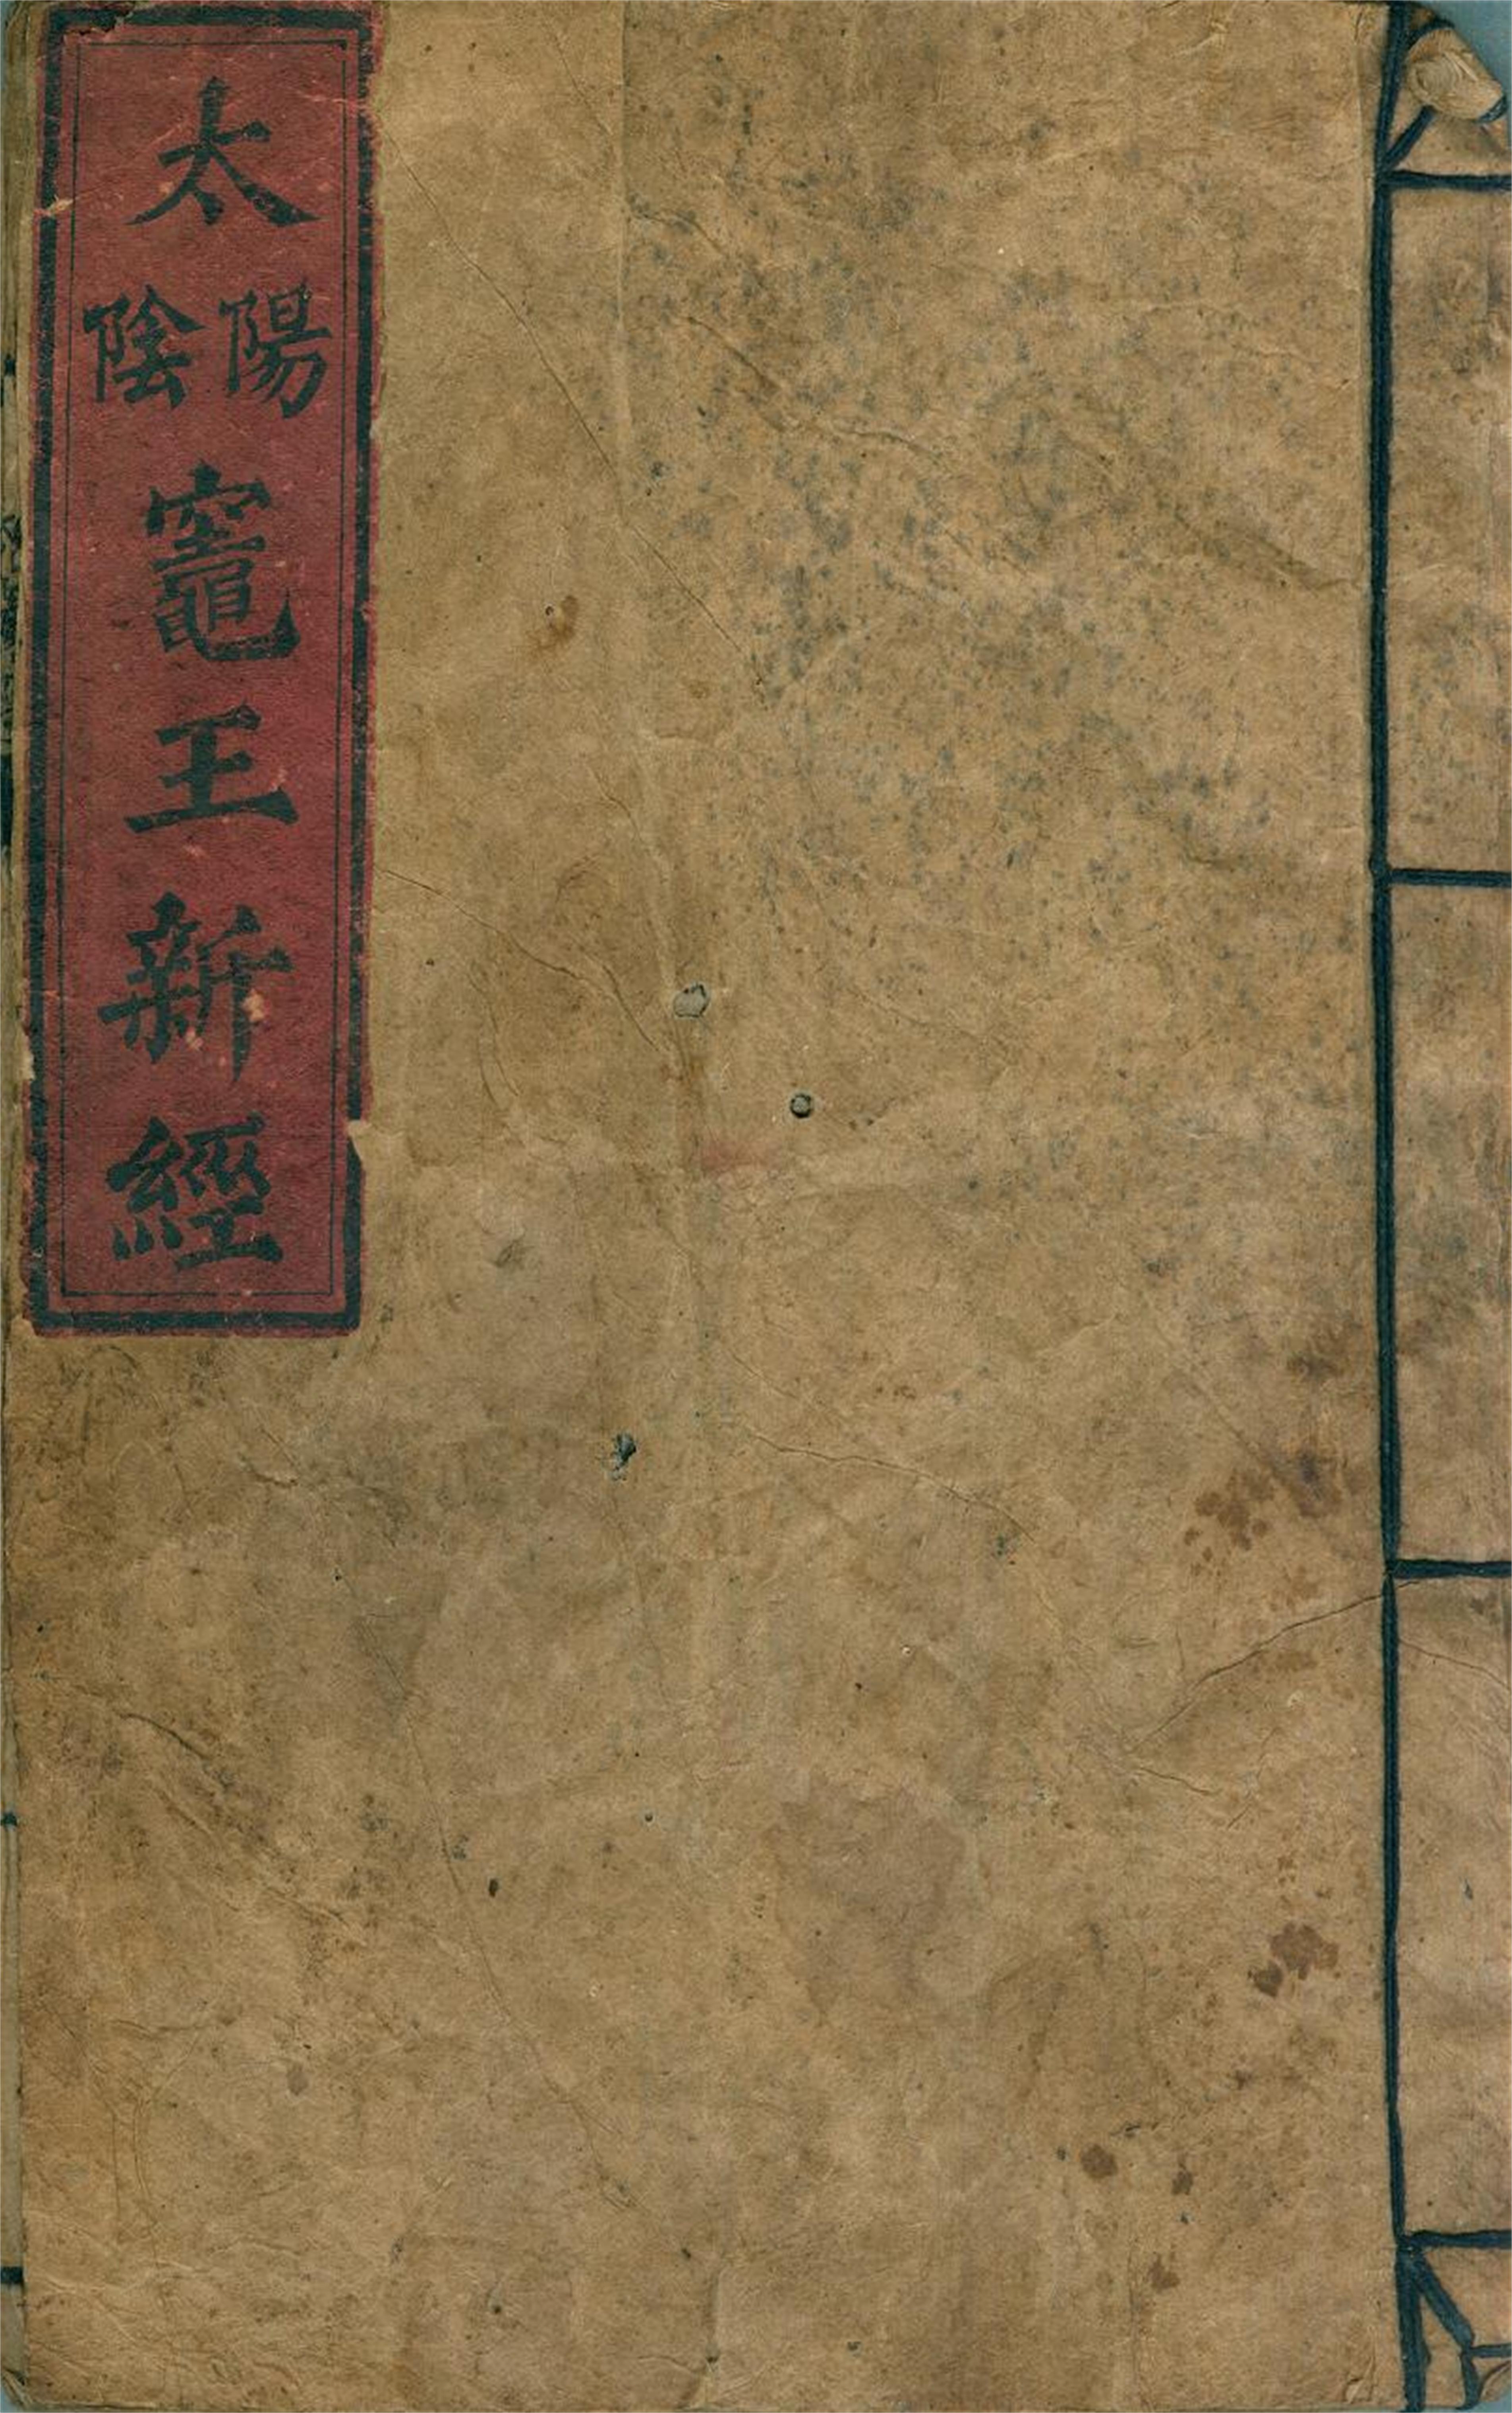 太
陽陰
竈王新經